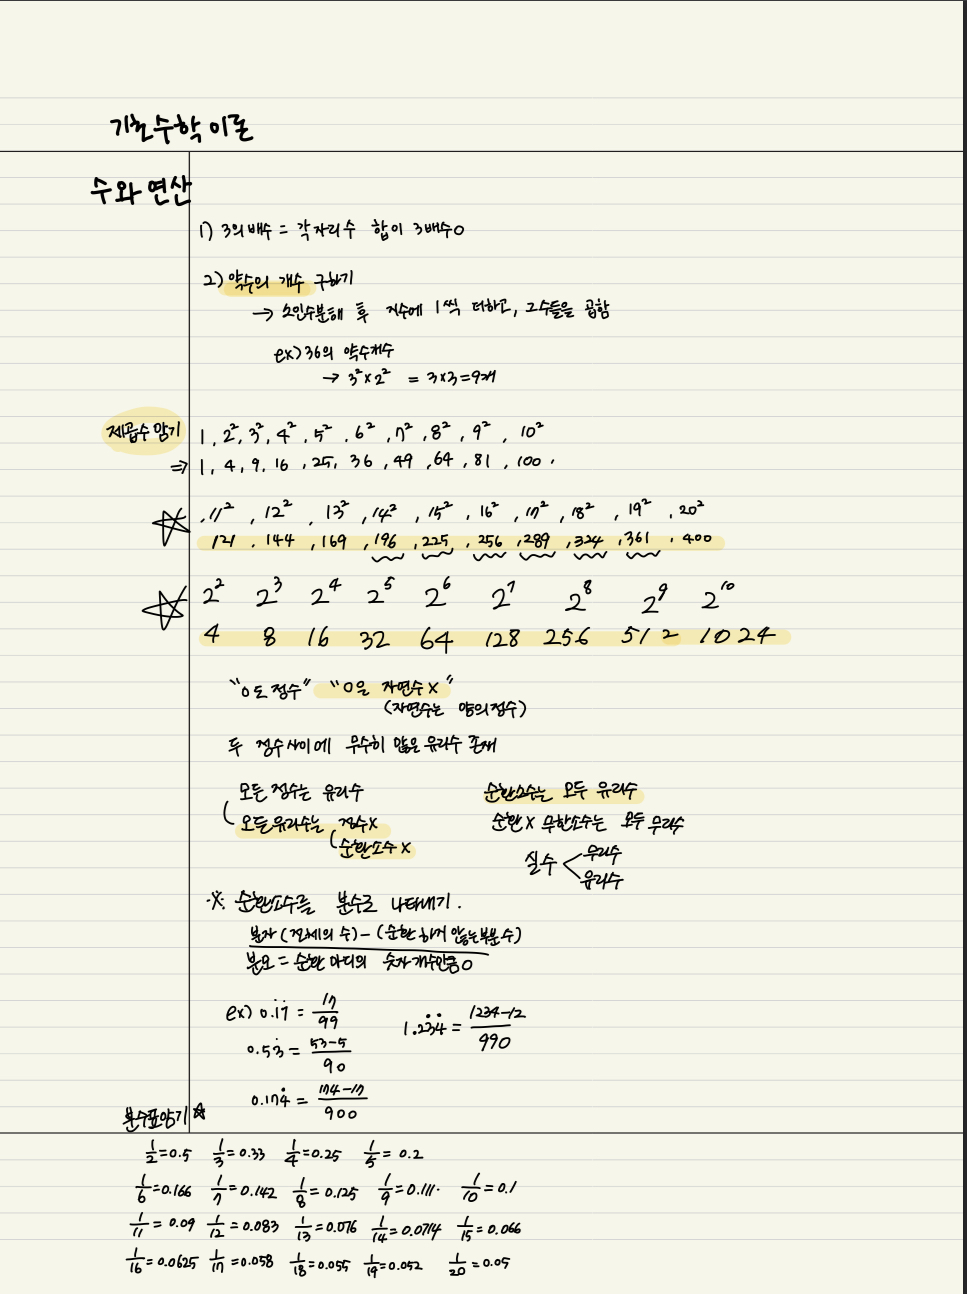 기초수학 이론
수와 연산
1) 3의 배수 = 각 자리수 합이 3배수0
2) 약수의 개수 구하기
→ 소인수분해 후 지수에 1씩 더하고, 그수들을 곱함
ex) 36의 약수개수
→ 3² × 2² = 3×3=9개
제곱수 암기 1, 2², 3², 4², 5², 6², 7², 8², 9², 10²
⇒ 1, 4, 9, 16, 25, 36, 49, 64, 81, 100.
☆ .11², 12², 13², 14², 15², 16², 17², 18², 19², 20²
121. 144, 169, 196, 225, 256, 289, 324, 361, 400
☆ 2² 2³ 2⁴ 2⁵ 2⁶ 2⁷ 2⁸ 2⁹ 2¹⁰
4 8 16 32 64 128 256 512 1024
"0도 정수" "0은 자연수 X"
(자연수는 양의정수)
두 정수사이에 무수히 많은 유리수 존재
모든 정수는 유리수 순환소수는 모두 유리수
모든유리수는 정수X 순환X 무한소수는 모두 무리수
순환소수 X
실수 < 무리수
유리수
※ 순환소수를 분수로 나타내기.
분자 (전체의 수) - (순환하지 않는부분 수)
분모 = 순환 마디의 숫자 개수만큼 0
ex) 0.1̇7̇ = 17/99 1.23̇4̇ = 1234-12/990
0.53̇ = 53-5/90
0.174̇ = 174-17/900
분수표암기 ☆
1/2=0.5 1/3=0.33 1/4=0.25 1/5=0.2
1/6=0.166 1/7=0.142 1/8=0.125 1/9=0.111. 1/10=0.1
1/11=0.09 1/12=0.083 1/13=0.076 1/14=0.0714 1/15=0.066
1/16=0.0625 1/17=0.058 1/18=0.055 1/19=0.052 1/20=0.05